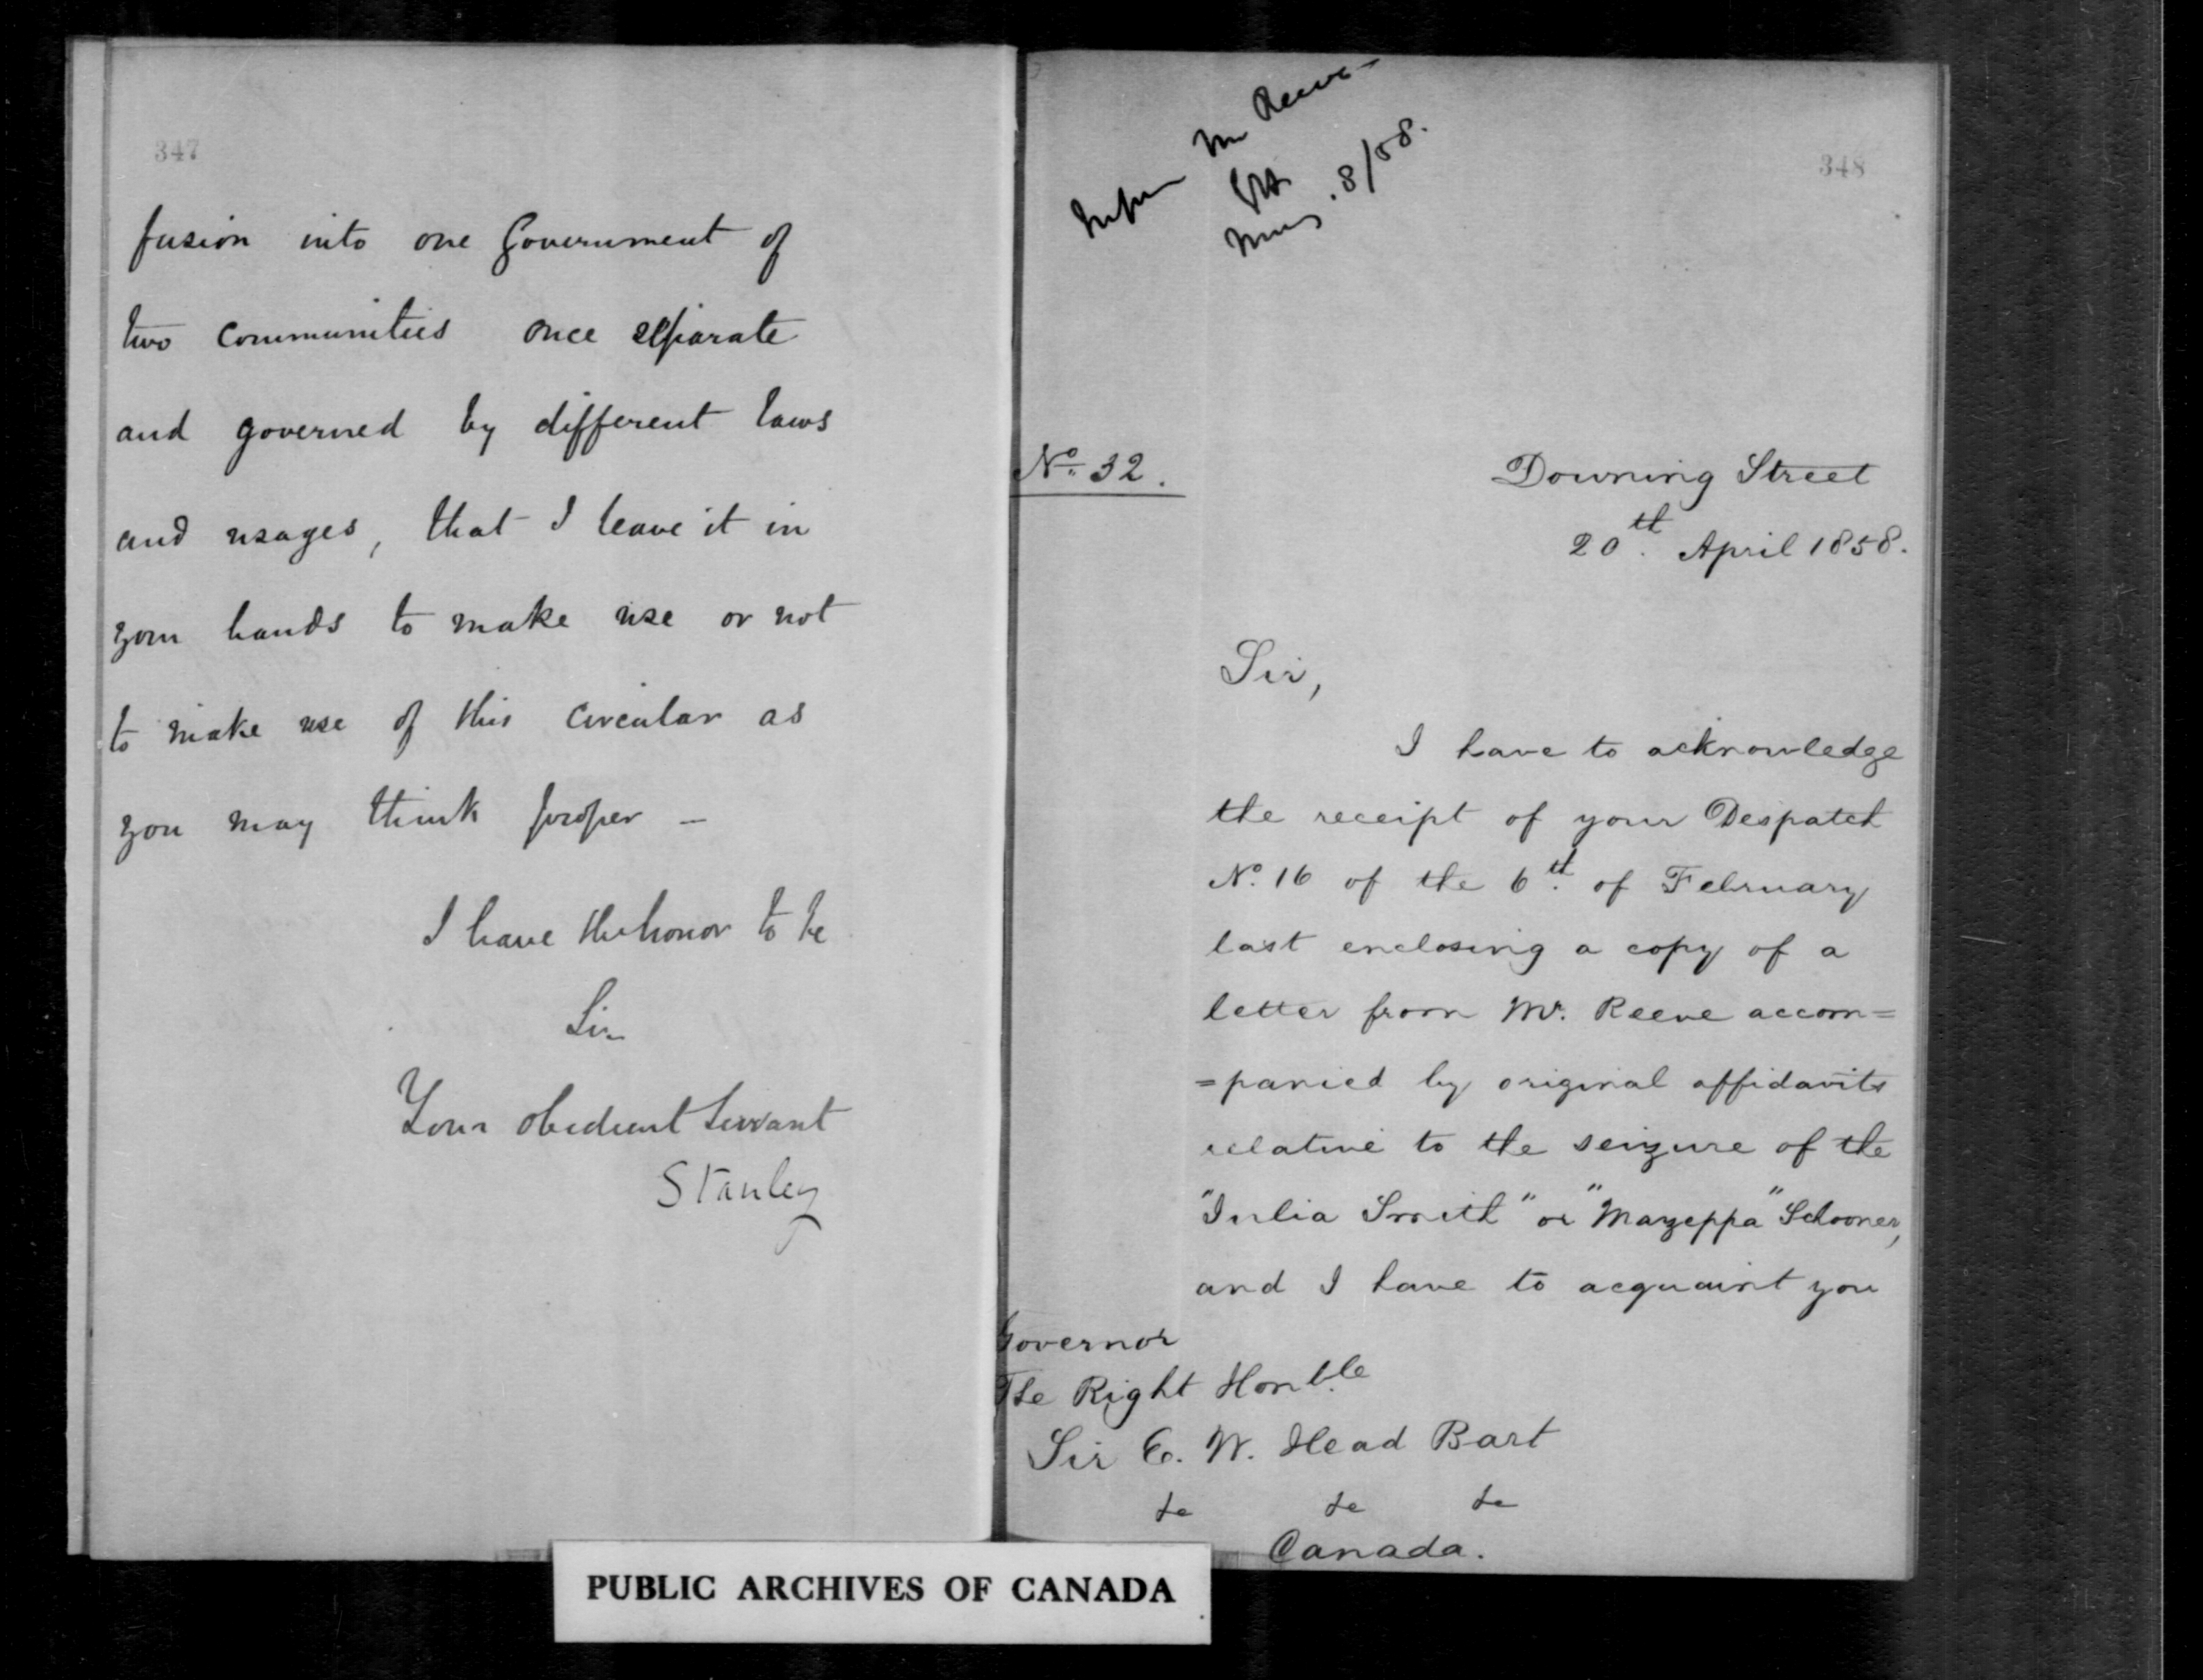 347
fusion into one Government of
two communities once separate
and governed by different laws
and usages, that I leave it in
your hands to make use or not
to make use of this circular as
you may think proper —
I have the honor to be
Sir
Your obedient Servant
Stanley
348
Inform Mr Reeve
8/58.
No. 32.
Downing Street
20th. April 1858.
Sir,
I have to acknowledge
the receipt of your Despatch
No. 16 of the 6th. of February
last enclosing a copy of a
letter from Mr. Reeve accom=
=panied by original affidavits
relative to the seizure of the
"Julia Smith" or "Mazeppa" Schooner,
and I have to acquaint you
Governor
The Right Honble
Sir E. W. Head Bart
&c &c &c
Canada.
PUBLIC ARCHIVES OF CANADA